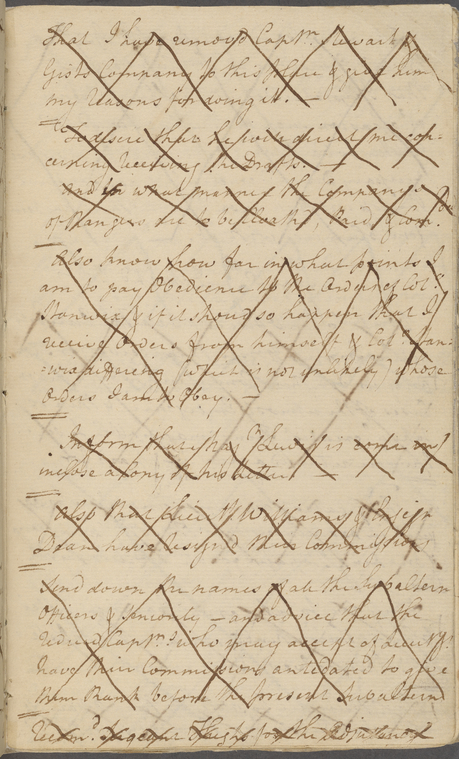 That I have remov'd Capt.n Stewart &
Gists Company to this place & give him
my Reasons for doing it. —
To desire that he wou'd direct me con-
cerning receiving the Drafts. —
And in what manner the Companys
of Rangers are to be Cloath'd, Paid & Com.
Also know how far in what points I
am to pay Obedience to the Orders of Col.
Stanwix & if it shoud so happen that I
receive Orders from himself & Col. Stan-
=wix differing (which is not unlikely) whose
Orders I am to Obey. —
Inform that is come in
inclose a Copy of his Letter
Also that Lieut. Williams & Ensign
Dean have resign'd their Commissions
Send down the names of all the Subaltern
Officers & Seniority — and advice that the
reduced Capt.ns who may accept of Lieut.
have their Commissions antedated to give
them Rank before the present Subaltern
Recom.d Sergeant Hughs for the Adjutancy